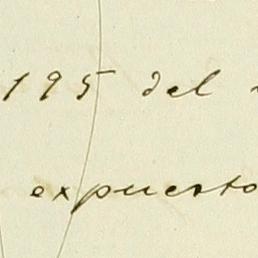 195 del
expuesto